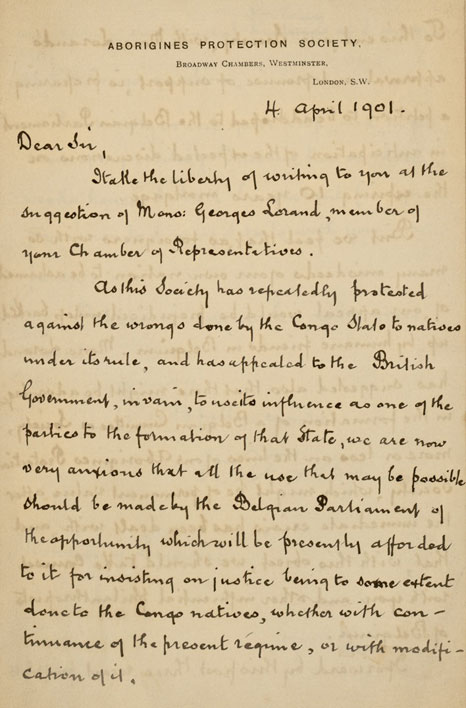 ABORIGINES PROTECTION SOCIETY,
BROADWAY CHAMBERS, WESTMINSTER,
LONDON, S.W.
4 April 1901.
Dear Sir,
I take the liberty of writing to you at the
suggestion of Mons: Georges Lorand, member of
your Chamber of Representatives.
As this Society has repeatedly protested
against the wrongs done by the Congo State to natives
under its rule, and has appealed to the British
Government, in vain, to use its influence as one of the
parties to the formation of that State, we are now
very anxious that all the use that may be possible
should be made by the Belgian Parliament of
the opportunity which will be presently afforded
to it for insisting on justice being to some extent
done to the Congo natives, whether with con-
tinuance of the present régime, or with modifi-
cation of it.